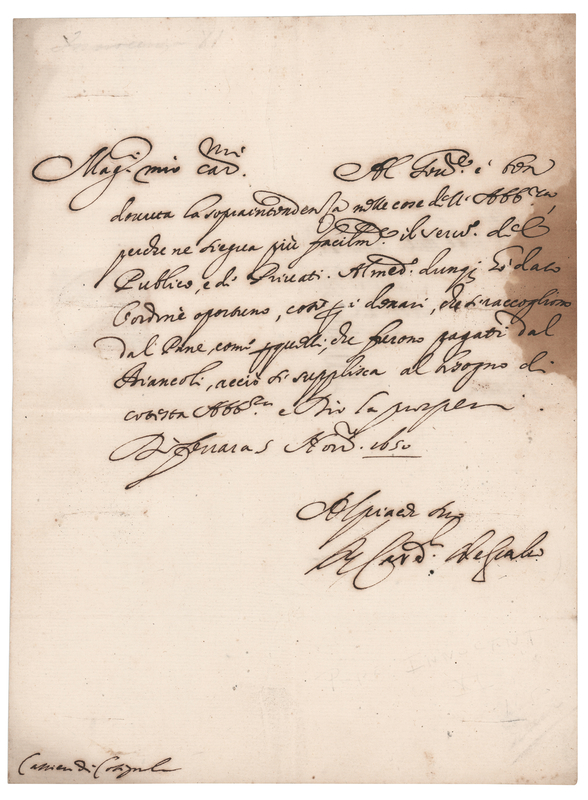 Mag.ci miei car.mi Al Gov.re è ben
dovuta la sopraintendenza nelle cose dell'Abb.za
perche ne siegua più facilm.te il serv.o del
Publico, e di Privati. Al med.o dunq; hò dato
l'ordine oportuno, così p i denari, che si raccogliono
dal Pane, come p quelli, che furono pagati dal
Biancoli, acciò si supplisca al bisogno di
cotesta Abb.za e Dio la prosperi
Di Ferrara 5 Nov.re 1650
Al piacer suo
Il Card.l Odescalchi
di Cotignola